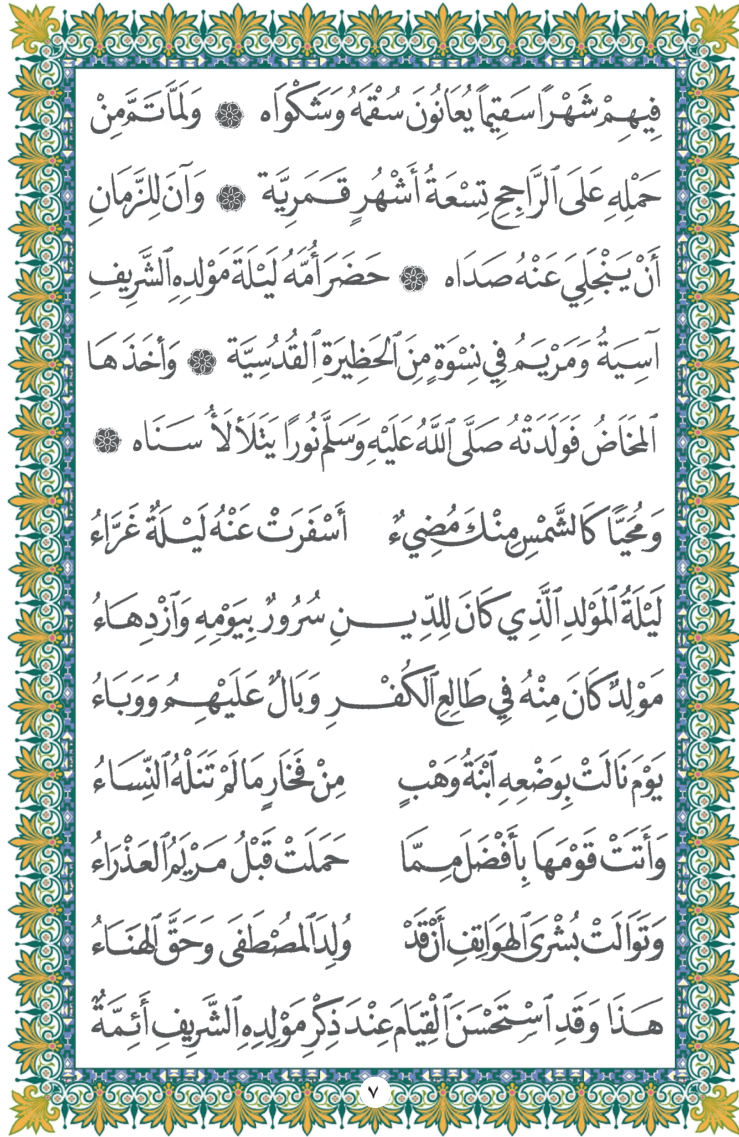 فِيهِمْ شَهْرًا سَقِيمًا يُعَانُونَ سُقْمَهُ وَشَكْوَاه ۞ وَلَمَّا تَمَّ مِنْ
حَمْلِهِ عَلَى ٱلرَّاجِحِ تِسْعَةُ أَشْهُرٍ قَمَرِيَّة ۞ وَآنَ لِلزَّمَانِ
أَنْ يَنْجَلِيَ عَنْهُ صَدَاه ۞ حَضَرَ أُمَّهُ لَيْلَةَ مَوْلِدِهِ ٱلشَّرِيفِ
آسِيَةُ وَمَرْيَمُ فِي نِسْوَةٍ مِنَ ٱلْحَظِيرَةِ ٱلْقُدْسِيَّة ۞ وَأَخَذَهَا
ٱلْمَخَاضُ فَوَلَدَتْهُ صَلَّى ٱللَّهُ عَلَيْهِ وَسَلَّمَ نُورًا يَتَلَأْلَأُ سَنَاه ۞
وَمُحَيًّا كَالشَّمْسِ مِنْكَ مُضِيءٌ أَسْفَرَتْ عَنْهُ لَيْلَةٌ غَرَّاءُ
لَيْلَةُ ٱلْمَوْلِدِ ٱلَّذِي كَانَ لِلدِّيـــنِ سُرُورٌ بِيَوْمِهِ وَٱزْدِهَاءُ
مَوْلِدٌ كَانَ مِنْهُ فِي طَالِعِ ٱلْكُفْـــرِ وَبَالٌ عَلَيْهِمُ وَوَبَاءُ
يَوْمَ نَالَتْ بِوَضْعِهِ ٱبْنَةُ وَهْبٍ مِنْ فَخَارٍ مَا لَمْ تَنَلْهُ ٱلنِّسَاءُ
وَأَتَتْ قَوْمَهَا بِأَفْضَلَ مِمَّا حَمَلَتْ قَبْلُ مَرْيَمُ ٱلْعَذْرَاءُ
وَتَوَالَتْ بُشْرَى ٱلْهَوَاتِفِ أَنْ قَدْ وُلِدَ ٱلْمُصْطَفَى وَحَقَّ ٱلْهَنَاءُ
هَذَا وَقَدِ ٱسْتَحْسَنَ ٱلْقِيَامَ عِنْدَ ذِكْرِ مَوْلِدِهِ ٱلشَّرِيفِ أَئِمَّةٌ
٧